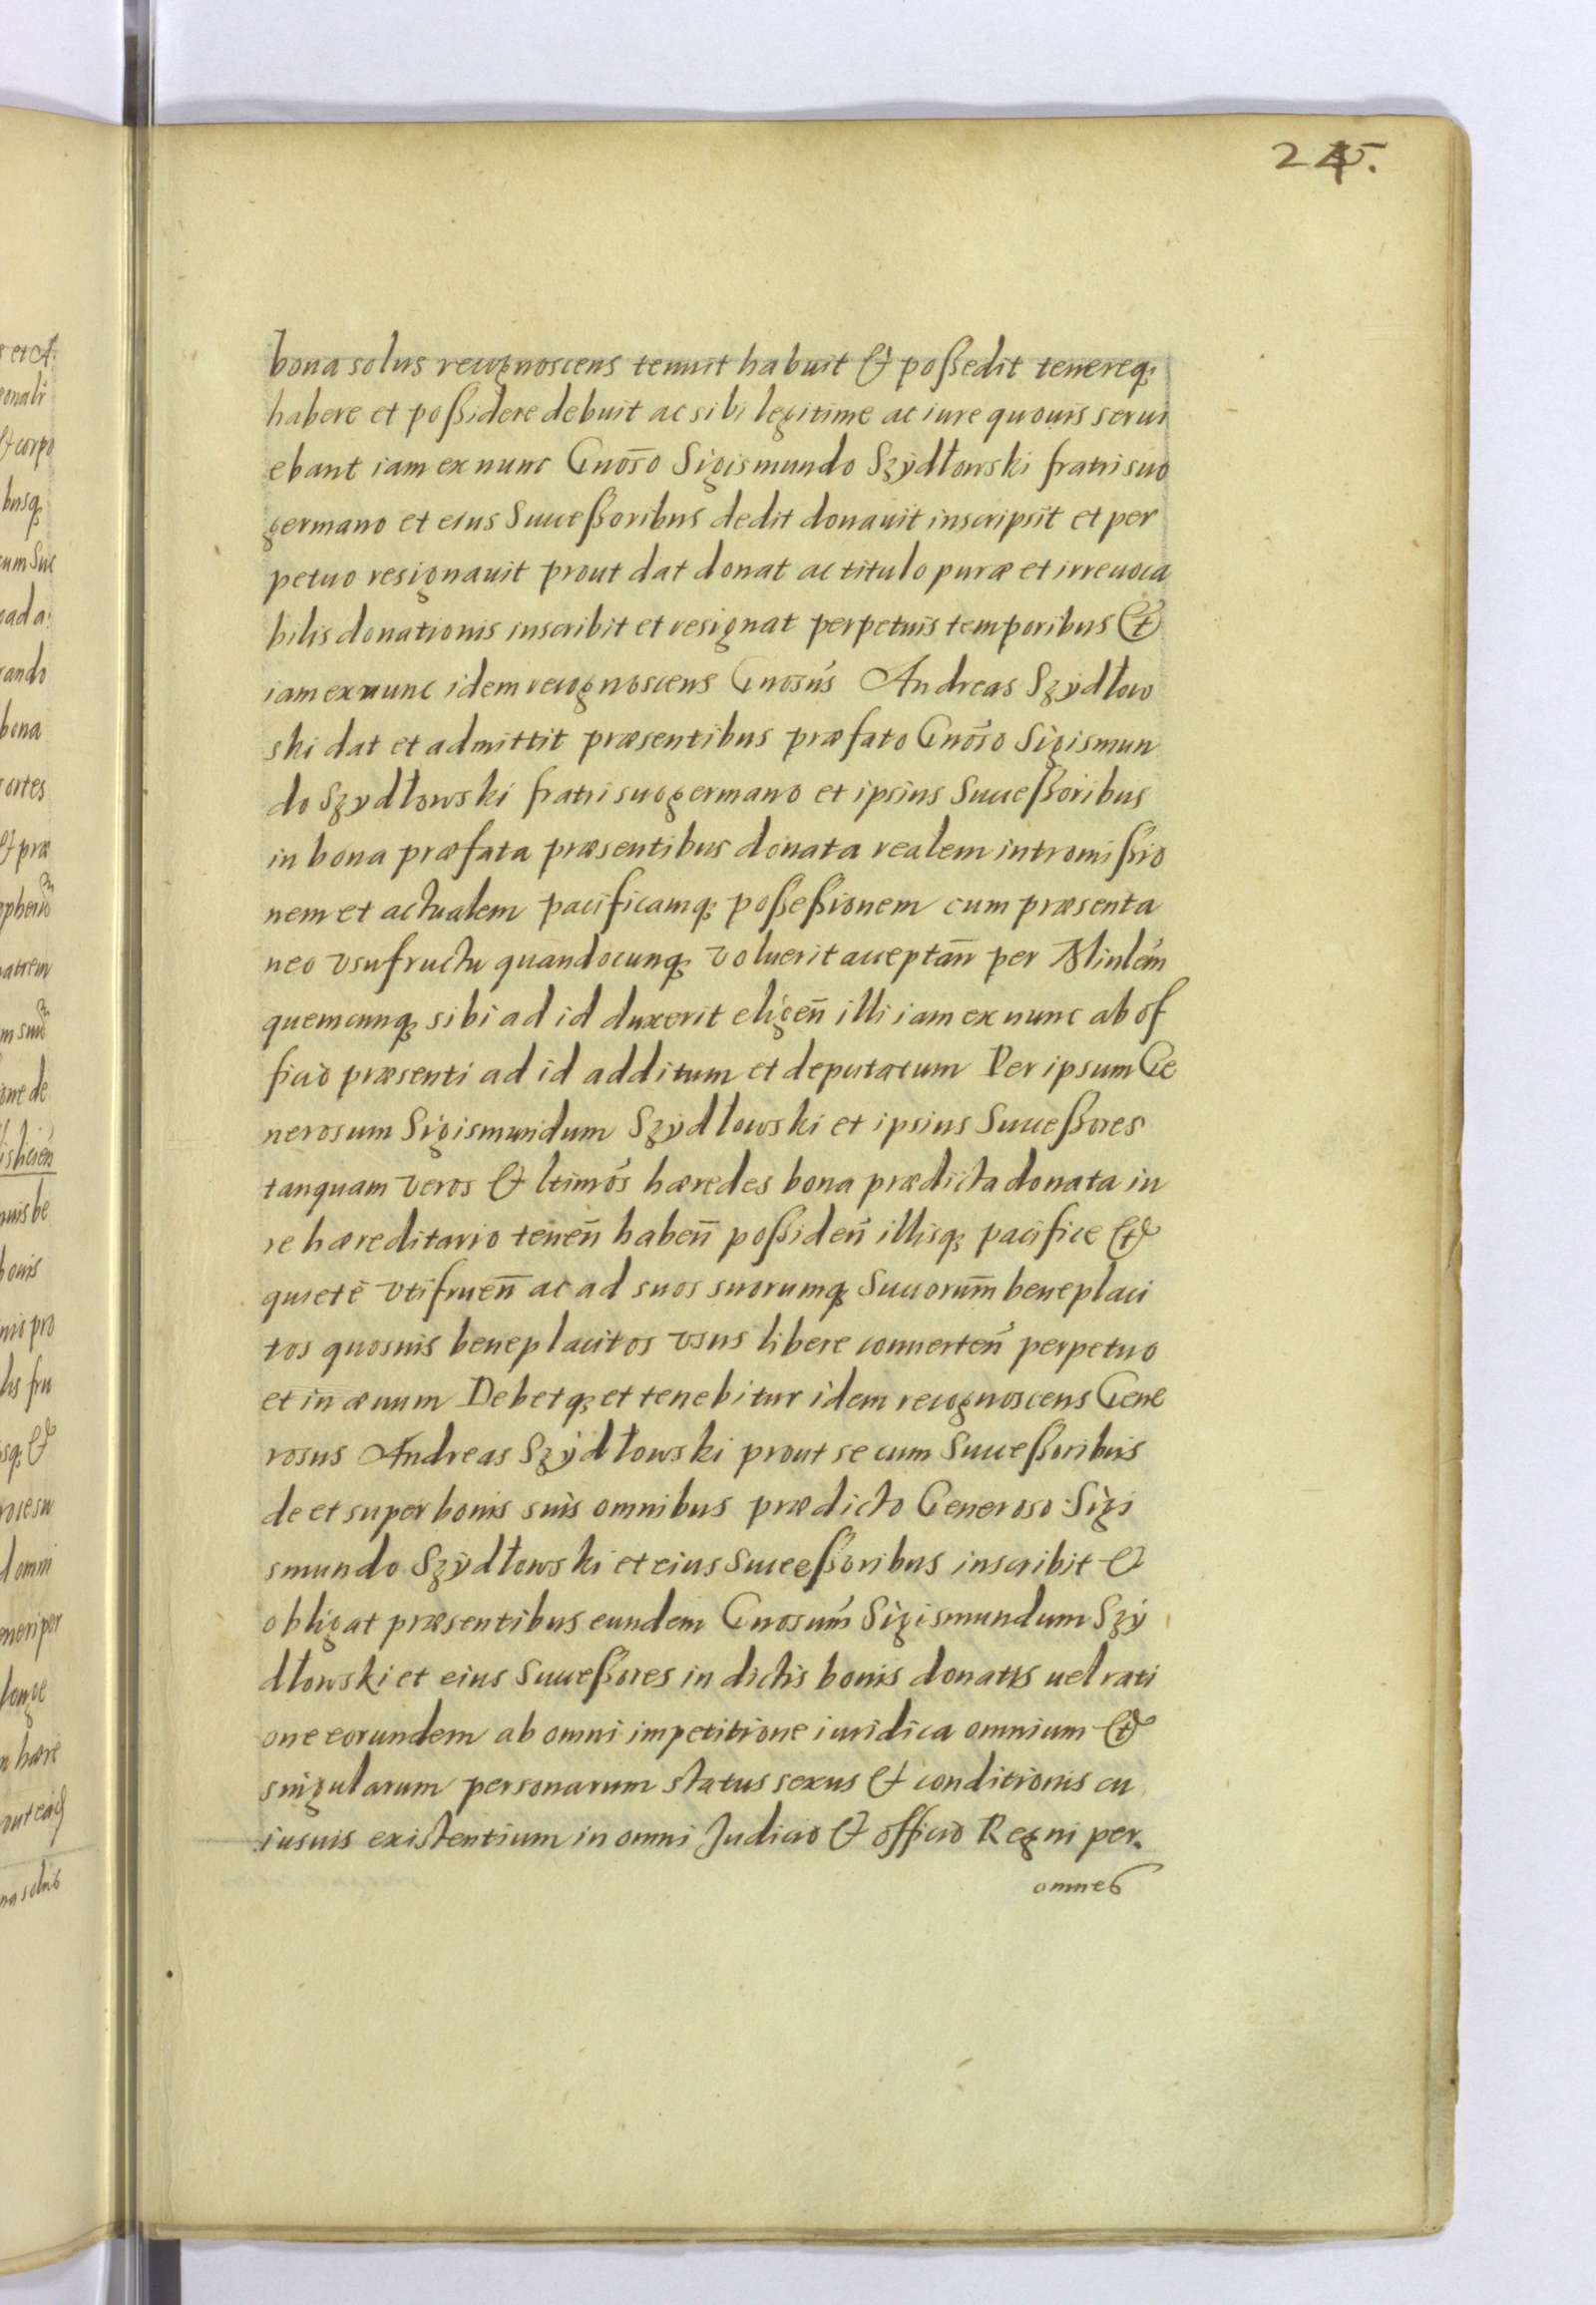 245.
bona solus recognoscens tenuit habuit & possedit tenereq;
habere et possidere debuit ac sibi legitime ac iure quouis serui
ebant iam ex nunc Gnoso Sigismundo Szÿdłowski fratri suo
germano et eius Successoribus dedit donauit inscripsit et per
petuo resignauit prout dat donat ac titulo puræ et irreuoca
bilis donationis inscribit et resignat perpetuis temporibus &
iam ex nunc idem recognoscens Gnosus Andreas Szÿdłow
ski dat et admittit præsentibus præfato Gnoso Sigismun
do Szydłowski fratri suo germano et ipsius Successoribus
in bona præfata præsentibus donata realem intromissio
nem et actualem pacificamq; possessionem cum præsenta
neo vsufructu quandocunq; voluerit acceptan̄ per Minlem
quemcunq; sibi ad id duxerit eligen̄ illi iam ex nunc ab of
ficio præsenti ad id additum et deputatum Per ipsum Ge
nerosum Sigismundum Szÿdlowski et ipsius Successores
tanquam veros & ltimos hæredes bona prædicta donata iu
re hæreditario tenen̄ haben̄ possiden̄ illisq; pacifice &
quietè vtifruen̄ ac ad suos suorumq; Succorum beneplaci
tos quosuis beneplacitos vsus libere conuerten̄ perpetuo
et in æuum Debetq; et tenebitur idem recognoscens Gene
rosus Andreas Szÿdłowski prout se cum Successoribus
de et super bonis suis omnibus prædicto Generoso Sigi
smundo Szÿdłowski et eius Successoribus inscribit &
obligat præsentibus eundem Gnosum Sigismundum Szÿ
dłowski et eius Successores in dictis bonis donatis uel rati
one eorundem ab omni impetitione iuridica omnium &
singularum personarum status sexus & conditionis cu
iusuis existentium in omni Judicio & officio Regni per
omnes